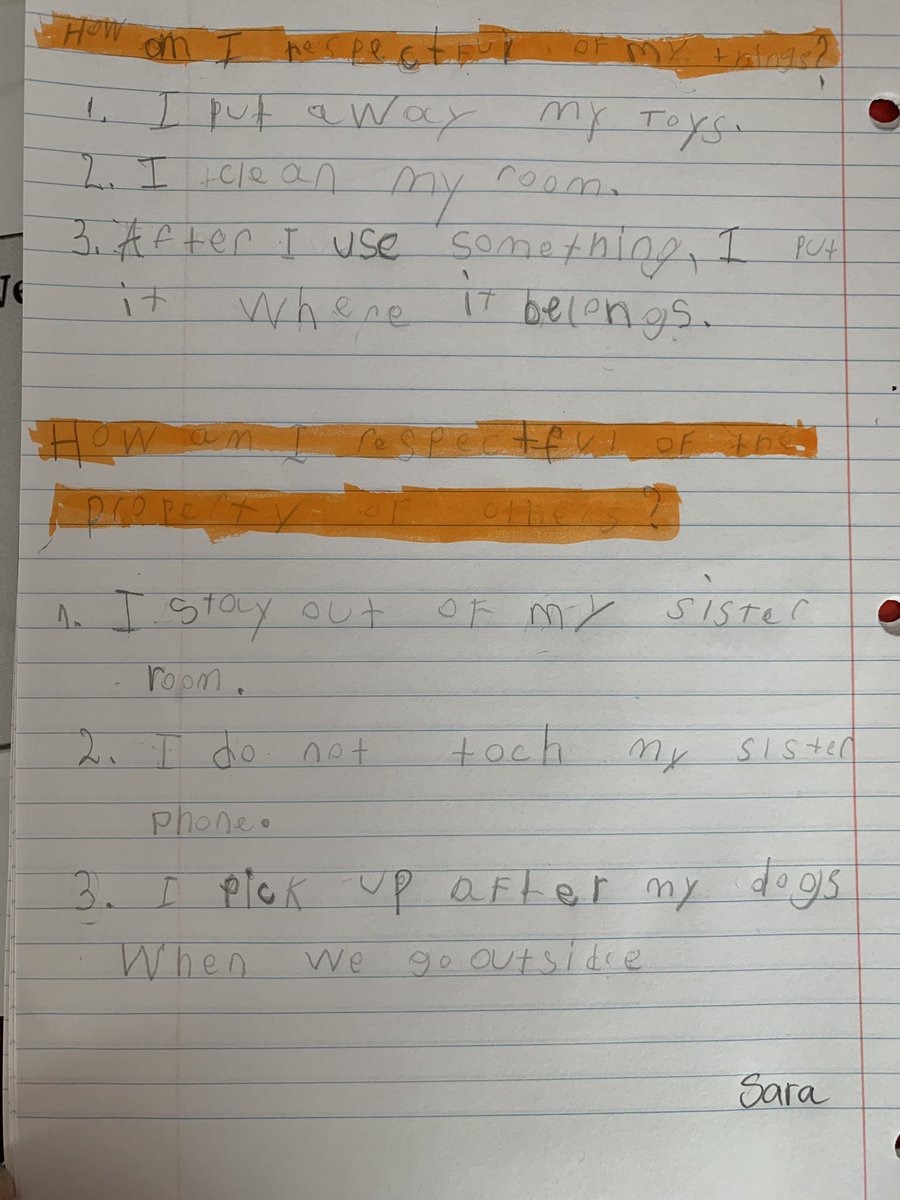 How am I respectful of my things?
1. I put away my Toys.
2. I clean my room.
3. After I use something, I put
it where it belongs.
How am I respectful of the
property of others?
1. I stay out of my sister
room.
2. I do not toch my sister
phone.
3. I pick up after my dogs
When we go outside
Sara